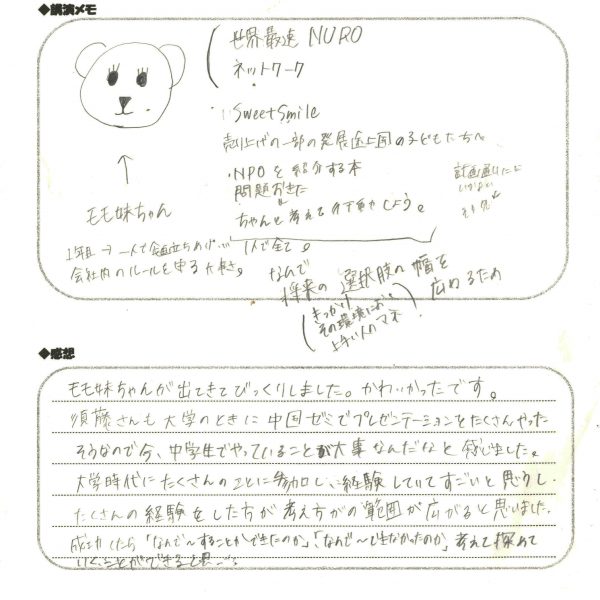 ◆講演メモ
世界最速 NURO
ネットワーク
Sweet Smile
売り上げの一部の発展途上国の子どもたちへ
・NPOを紹介する本
問題おきた
ちゃんと考えて
計画通りに
モモ妹ちゃん
1年目→一人で 立ちあげ 1人で全て。
会社内のルールを守る大事さ。
なんで
将来の選択肢の幅を
広めるため
きっかけ
その環境に
上手い人のマネ
◆感想
モモ妹ちゃんが出てきてびっくりしました。かわいかったです。
須藤さんも大学のときに中国ゼミでプレゼンテーションをたくさんやった
そうなので今、中学生でやっていることが大事なんだなと感じました。
大学時代にたくさんのことに参加し、経験していてすごいと思うし、
たくさんの経験をした方が考え方がの範囲が広がると思いました。
成功したら「なんで〜することができたのか」、「なんで〜しなかったのか」考えて深めて
いくことができると思